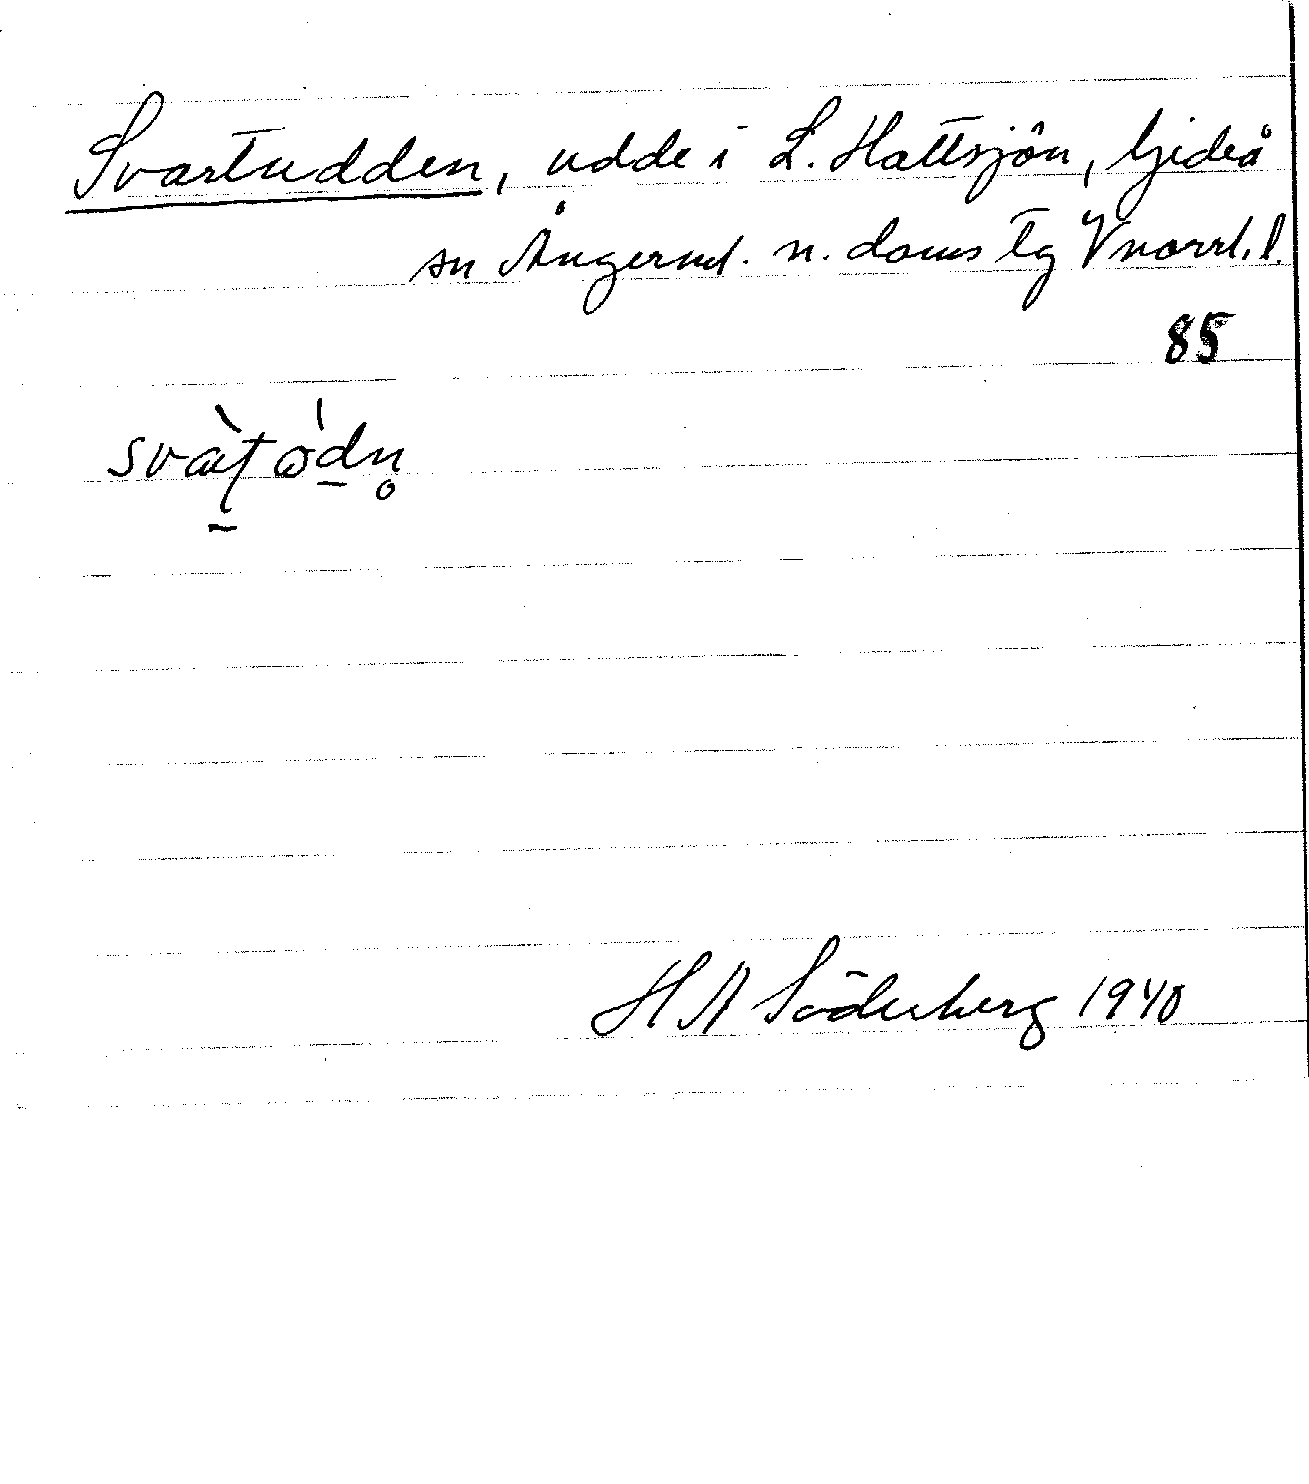 Svartudden, udde i L. Hattsjön, Gideå
sn Ångerml. n. doms tg Vnorrl. l.
85
svàt̲ød̲n̥
H A Söderberg 1940